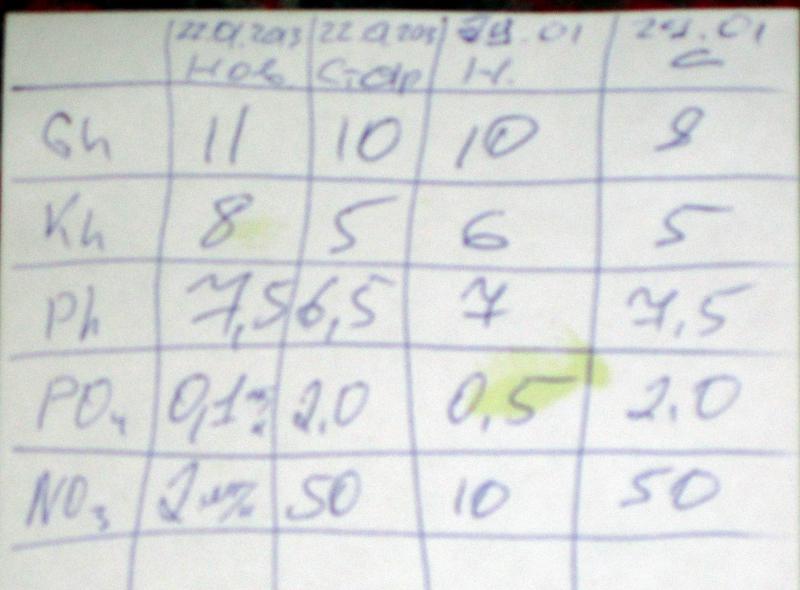 22.01.2013 22.01.2013 29.01 29.01
Нов. Стар Н. С
Gh 11 10 10 8
Kh 8 5 6 5
Ph 7,5 6,5 7 7,5
PO₄ 0,1 2.0 0,5 2.0
NO₃ 2 50 10 50